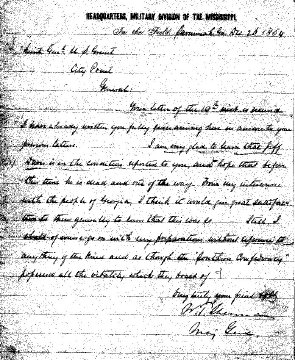 HEADQUARTERS, MILITARY DIVISION OF THE MISSISSIPPI,
In the Field, Savannah, Ga. Dec 26 1864
Lieut Genl. U. S. Grant
City Point
General:
Your letter of the inst is received
I have already written you fully since arriving here in answer to your
previous letters. I am very glad to learn that Jeff
Davis is in the condition reported to you, and hope that before
this time he is dead and out of the way. From my intercourse
with the people of Georgia, I think it would give great satisfac-
tion to them generally to learn that this was so. Still I
should of course go on with my preparations without reference to
anything of the kind and as though the Southern Confederacy
possessed all the vitality which they boast of
Very truly your friend
W. T. Sherman
Maj. Genl.